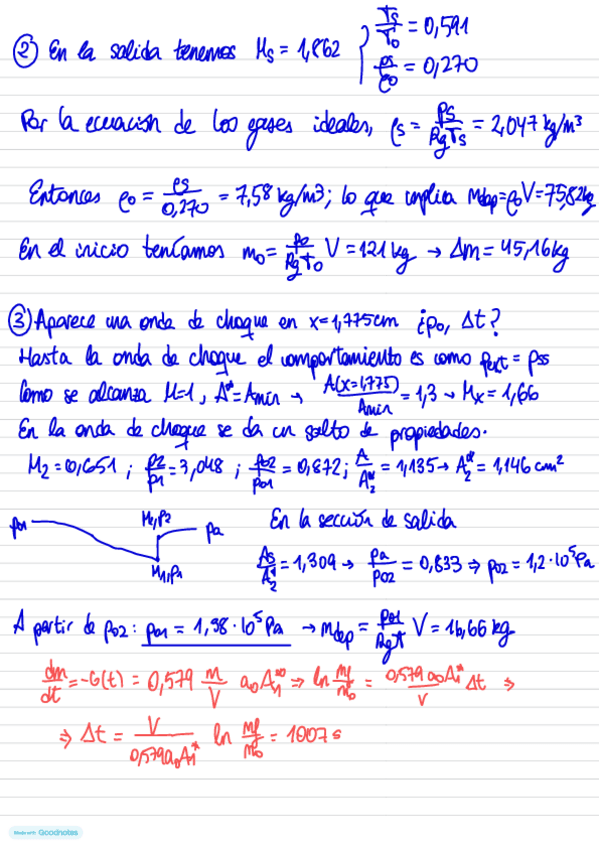 ② En la salida tenemos Ms = 1,862 { Ts/To = 0,591
ρs/ρo = 0,270
Por la ecuación de los gases ideales, ρs = ps/RgTs = 2,047 kg/m³
Entonces ρo = ρs/0,270 = 7,58 kg/m³; lo que implica mdep = ρoV = 75,82 kg
En el inicio teníamos mo = po/RgTo V = 121 kg → Δm = 45,16 kg
③ Aparece una onda de choque en x = 1,775cm ¿po, Δt?
Hasta la onda de choque el comportamiento es como pext = pss
Como se alcanza M=1, A* = Amin → A(x=1,775)/Amin = 1,3 → Mx = 1,66
En la onda de choque se da un salto de propiedades.
M2 = 0,651 ; p2/p1 = 3,048 ; p02/p01 = 0,872 ; A/A2* = 1,135 → A2* = 1,146 cm²
p01 M2,p2 pa En la sección de salida
M1,p1 As/A2* = 1,309 → pa/p02 = 0,833 ⇒ p02 = 1,2·10⁵Pa
A partir de p02: p01 = 1,38·10⁵Pa → mdep = p01/RgT V = 16,66 kg
dm/dt = -G(t) = 0,579 m/V ao A1* ⇒ ln mf/mo = 0,579 ao A1*/V Δt ⇒
⇒ Δt = V/0,579 ao A1* ln mf/mo = 1007 s
Made with Goodnotes